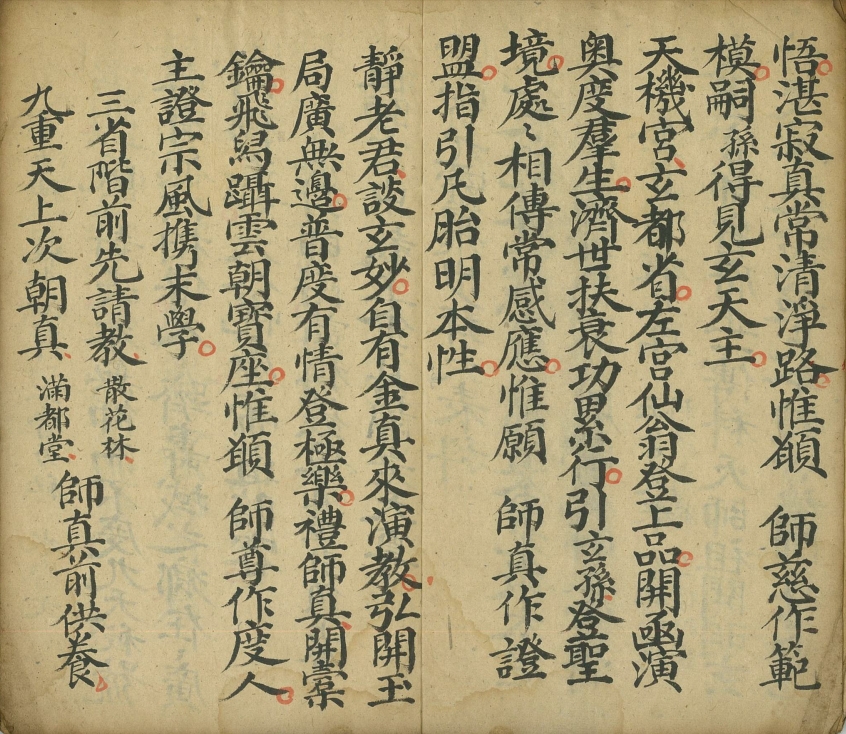 悟湛寂真常清淨路惟願　師慈作範
模嗣孫得見玄天主
天機宮玄都省左宮仙翁登上品開函演
奥度羣生濟世扶衰功累行引玄孫登聖
境處〻相傳常感應惟願　師真作證
盟指引凡胎明本性
靜老君談玄妙自有金真來演教弘開玉
局廣無邊普度有情登極樂禮師真開橐
鑰飛舄躡雲朝寶座惟願　師尊作度人
主證宗風携末學
三省階前先請教　散花林
九重天上次朝真　滿都堂　師真前供養